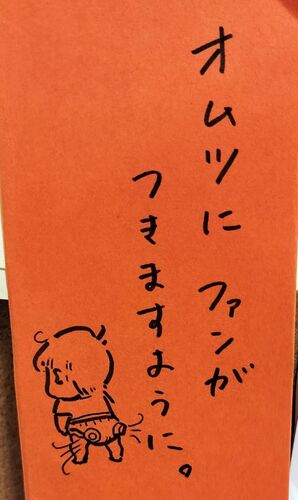 オムツに ファンが
つきますように。